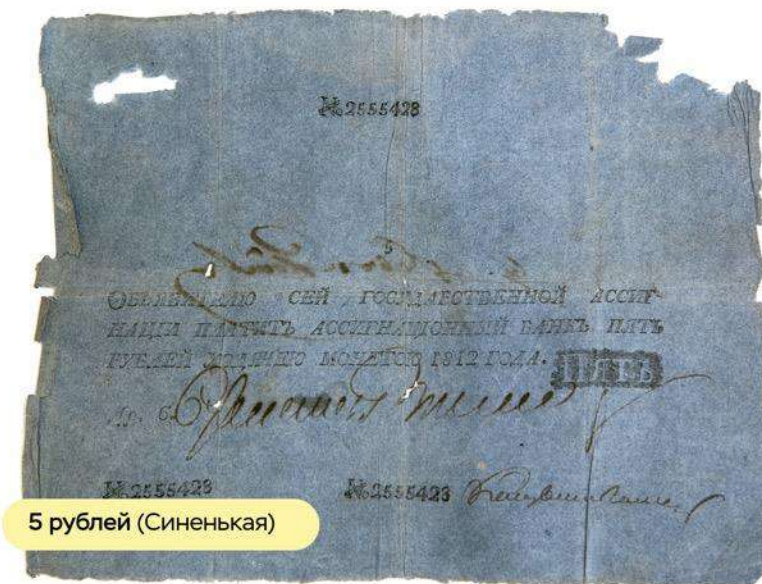 №2555428
ОБЪЯВИТЕЛЮ СЕЙ ГОСУДАРСТВЕННОЙ АССИГ-
НАЦІИ ПЛАТИТЪ АССИГНАЦІОННЫЙ БАНКЪ ПЯТЬ
РУБЛЕЙ ХОДЯЧЕЮ МОНЕТОЮ 1812 ГОДА. ПЯТЬ
№2555428 №2555428
5 рублей (Синенькая)